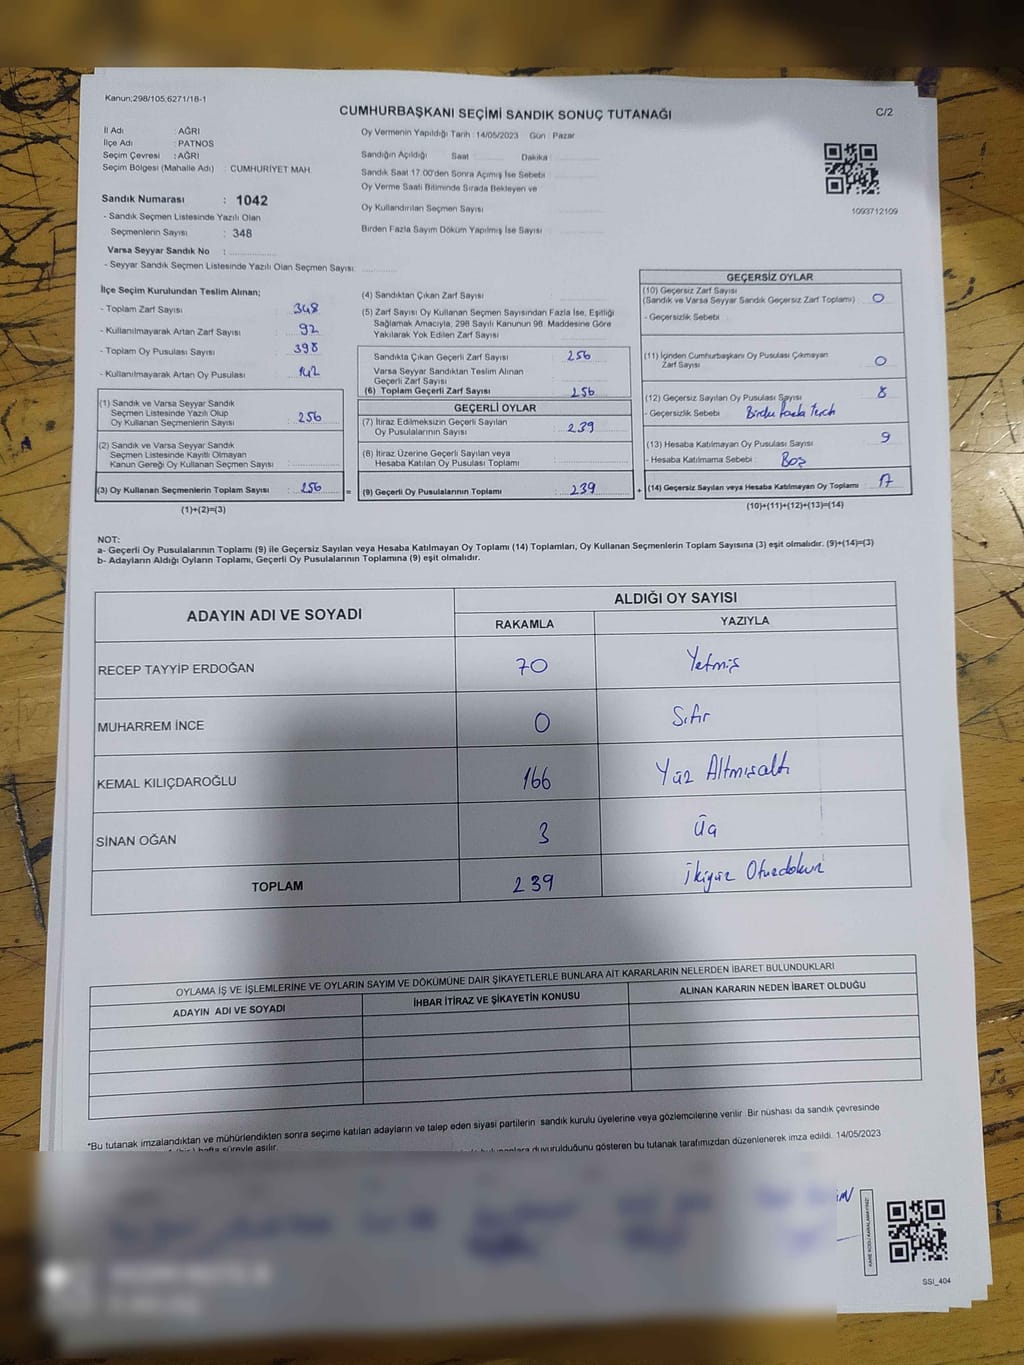 Kanun;298/105,6271/18-1
CUMHURBAŞKANI SEÇİMİ SANDIK SONUÇ TUTANAĞI
C/2
İl Adı : AĞRI
İlçe Adı : PATNOS
Seçim Çevresi : AĞRI
Seçim Bölgesi (Mahalle Adı) : CUMHURİYET MAH.
Oy Vermenin Yapıldığı Tarih : 14/05/2023 Gün : Pazar
Sandığın Açıldığı Saat : Dakika :
Sandık Saat 17.00'den Sonra Açımış İse Sebebi :
Oy Verme Saati Bitiminde Sırada Bekleyen ve
Oy Kullandırılan Seçmen Sayısı :
Birden Fazla Sayım Döküm Yapılmış İse Sayısı :
1093712109
Sandık Numarası : 1042
- Sandık Seçmen Listesinde Yazılı Olan
Seçmenlerin Sayısı : 348
Varsa Seyyar Sandık No :
- Seyyar Sandık Seçmen Listesinde Yazılı Olan Seçmen Sayısı:
İlçe Seçim Kurulundan Teslim Alınan;
- Toplam Zarf Sayısı : 348
- Kullanılmayarak Artan Zarf Sayısı : 92
- Toplam Oy Pusulası Sayısı : 398
- Kullanılmayarak Artan Oy Pusulası : 142
(1) Sandık ve Varsa Seyyar Sandık
Seçmen Listesinde Yazılı Olup
Oy Kullanan Seçmenlerin Sayısı : 256
(2) Sandık ve Varsa Seyyar Sandık
Seçmen Listesinde Kayıtlı Olmayan
Kanun Gereği Oy Kullanan Seçmen Sayısı :
(3) Oy Kullanan Seçmenlerin Toplam Sayısı : 256 =
(1)+(2)=(3)
(4) Sandıktan Çıkan Zarf Sayısı :
(5) Zarf Sayısı Oy Kullanan Seçmen Sayısından Fazla İse, Eşitliği
Sağlamak Amacıyla, 298 Sayılı Kanunun 98. Maddesine Göre
Yakılarak Yok Edilen Zarf Sayısı :
Sandıkta Çıkan Geçerli Zarf Sayısı : 256
Varsa Seyyar Sandıktan Teslim Alınan
Geçerli Zarf Sayısı :
(6) Toplam Geçerli Zarf Sayısı : 256
GEÇERLİ OYLAR
(7) İtiraz Edilmeksizin Geçerli Sayılan
Oy Pusulalarının Sayısı : 239
(8) İtiraz Üzerine Geçerli Sayılan veya
Hesaba Katılan Oy Pusulası Toplamı :
(9) Geçerli Oy Pusulalarının Toplamı : 239 +
GEÇERSİZ OYLAR
(10) Geçersiz Zarf Sayısı
(Sandık ve Varsa Seyyar Sandık Geçersiz Zarf Toplamı) : 0
- Geçersizlik Sebebi :
(11) İçinden Cumhurbaşkanı Oy Pusulası Çıkmayan
Zarf Sayısı : 0
(12) Geçersiz Sayılan Oy Pusulası Sayısı : 8
- Geçersizlik Sebebi : Birden Fazla Terch
(13) Hesaba Katılmayan Oy Pusulası Sayısı : 9
- Hesaba Katılmama Sebebi : Boş
(14) Geçersiz Sayılan veya Hesaba Katılmayan Oy Toplamı : 17
(10)+(11)+(12)+(13)=(14)
NOT:
a- Geçerli Oy Pusulalarının Toplamı (9) ile Geçersiz Sayılan veya Hesaba Katılmayan Oy Toplamı (14) Toplamları, Oy Kullanan Seçmenlerin Toplam Sayısına (3) eşit olmalıdır. (9)+(14)=(3)
b- Adayların Aldığı Oyların Toplamı, Geçerli Oy Pusulalarının Toplamına (9) eşit olmalıdır.
ADAYIN ADI VE SOYADI
ALDIĞI OY SAYISI
RAKAMLA YAZIYLA
RECEP TAYYİP ERDOĞAN 70 Yetmiş
MUHARREM İNCE 0 Sıfır
KEMAL KILIÇDAROĞLU 166 Yüz Altmışaltı
SİNAN OĞAN 3 Üç
TOPLAM 239 İkiyüz Otuzdokuz
OYLAMA İŞ VE İŞLEMLERİNE VE OYLARIN SAYIM VE DÖKÜMÜNE DAİR ŞİKAYETLERLE BUNLARA AİT KARARLARIN NELERDEN İBARET BULUNDUKLARI
ADAYIN ADI VE SOYADI İHBAR İTİRAZ VE ŞİKAYETİN KONUSU ALINAN KARARIN NEDEN İBARET OLDUĞU
*Bu tutanak imzalandıktan ve mühürlendikten sonra seçime katılan adayların ve talep eden siyasi partilerin sandık kurulu üyelerine veya gözlemcilerine verilir. Bir nüshası da sandık çevresinde
hafta süreyle asılır.
duyurulduğunu gösteren bu tutanak tarafımızdan düzenlenerek imza edildi. 14/05/2023
SSI_404